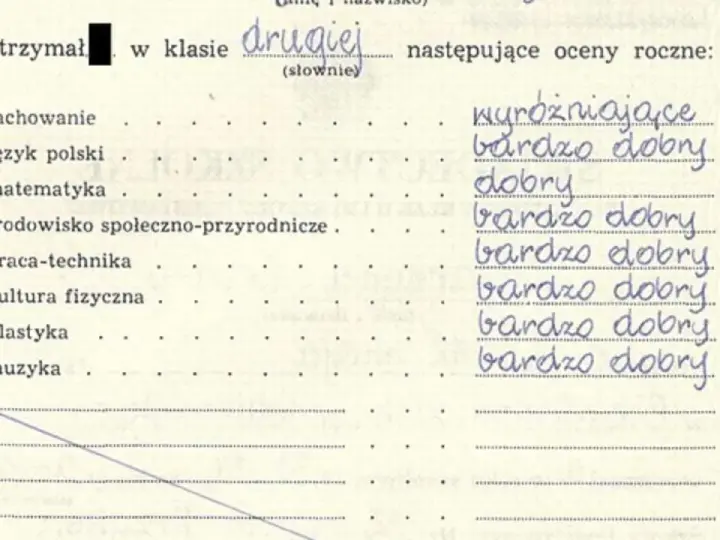 (imię i nazwisko)
trzymał w klasie drugiej następujące oceny roczne:
(słownie)
achowanie . . . . . . . . . . wyróżniające
ęzyk polski . . . . . . . . . . bardzo dobry
natematyka . . . . . . . . . . dobry
rodowisko społeczno-przyrodnicze . . . . bardzo dobry
raca-technika . . . . . . . . . bardzo dobry
ultura fizyczna . . . . . . . . . bardzo dobry
lastyka . . . . . . . . . . bardzo dobry
nuzyka . . . . . . . . . . bardzo dobry